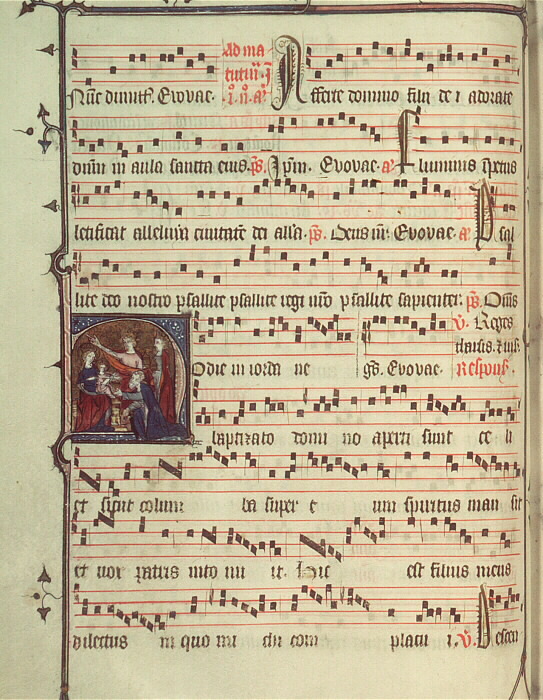 Nūc dimittˢ. Evovae. Ad ma
tutinˀ. ī
.i. n̄. aᷓ. Afferte domino filij de i adorate
dnm̄ in aula sancta eius. p̄s. Ip̄m. Evovae. a. Fluminis īpetus
letificat alleluya ciuitatē dei all'a. p̄s. Deus nr̄. Evovae. a. Psal
lite deo nostro psallite psallite regi nr̄o psallite sapienter. p̄s. Om̄s
v. Reges
tharsis.
Hodie in iorda ne gˢ. Evovae. Responˢ.
baptizato domi no aperti sunt ce li
et sicut colum ba super e um spiritus man sit
et vox patris into nu it. Hic est filius meus
dilectus in quo mi chi com placu i. v. Descen